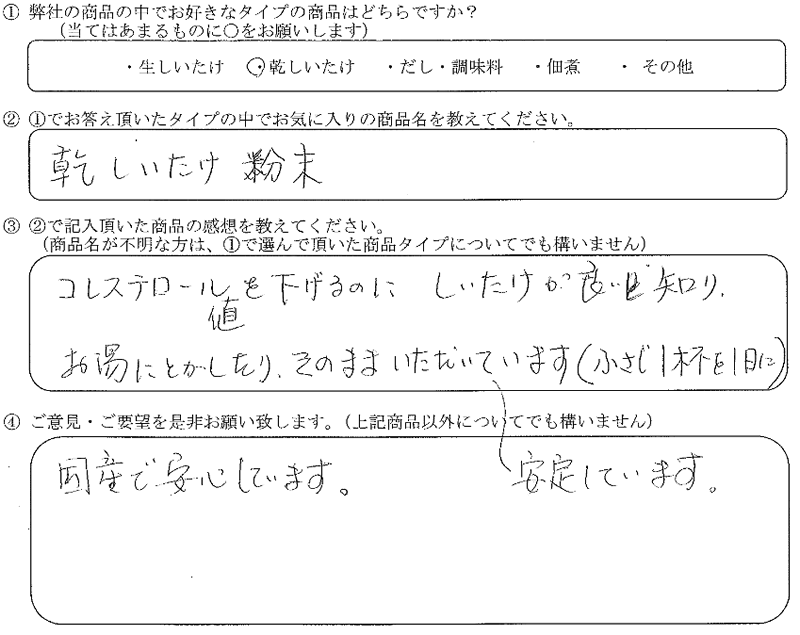 ① 弊社の商品の中でお好きなタイプの商品はどちらですか？
（当てはあまるものに○をお願いします）
・生しいたけ ・乾しいたけ ・だし・調味料 ・佃煮 ・ その他
② ①でお答え頂いたタイプの中でお気に入りの商品名を教えてください。
乾しいたけ 粉末
③ ②で記入頂いた商品の感想を教えてください。
（商品名が不明な方は、①で選んで頂いた商品タイプについてでも構いません）
コレステロール値を下げるのに しいたけが良いと知り、
お湯にとかしたり、そのままいただいています（小さじ1杯を1日に）
④ ご意見・ご要望を是非お願い致します。（上記商品以外についてでも構いません）
国産で安心しています。 安定しています。